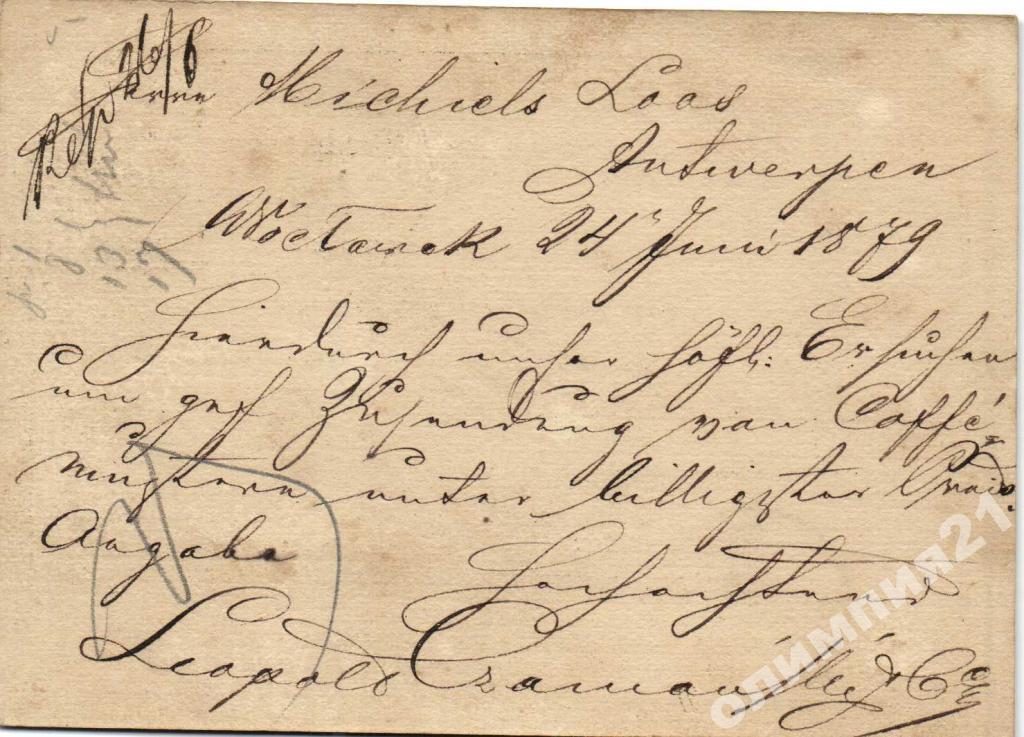 Rép 26/6
Herrn Michiels Loos
Antwerpen
Włocławek 24 Juni 1879
Hierdurch unser höfl: Ersuchen
um gefl Zusendung von Caffé
mustern unter billigster Preis
Angabe
Hochachtend
Leopold Czamański & Co
ОЛИМПИЯ21